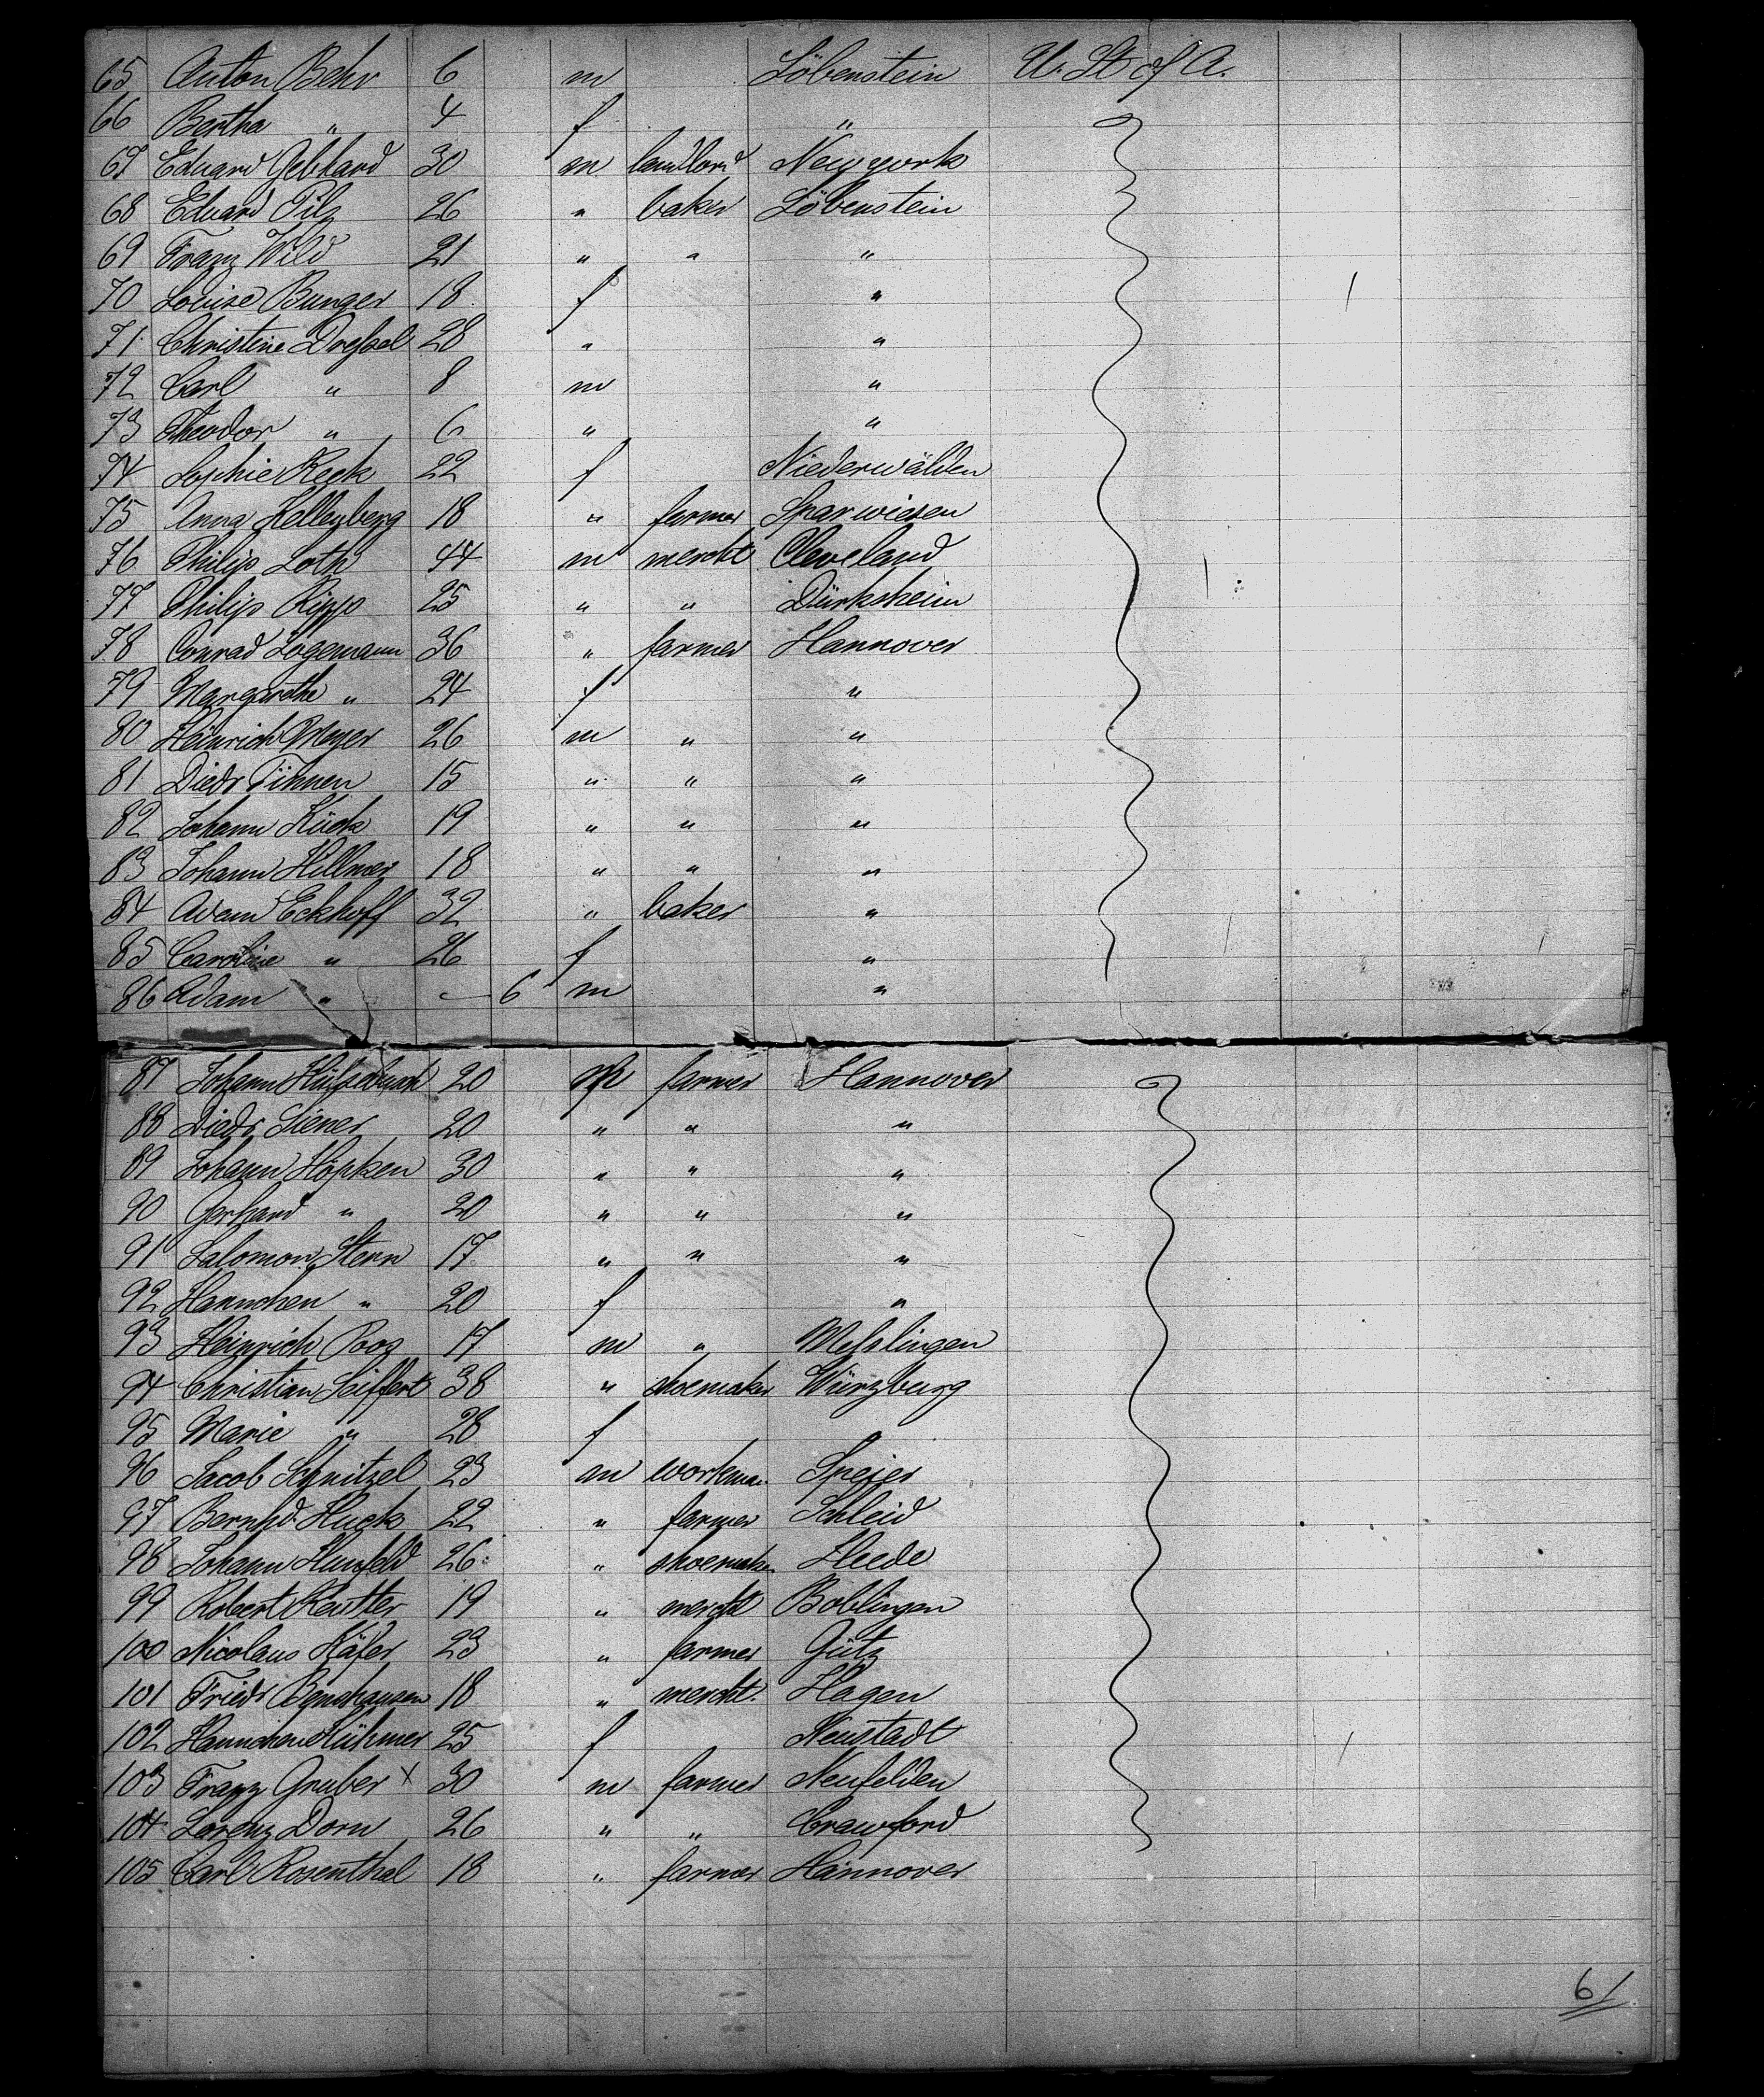 65 Anton Behr 6 m Löbenstein U. St of A.
66 Bertha " 4 f "
67 Eduard Gebhard 30 m landlord Newyork
68 Eduard Pilz 26 " baker Löbenstein
69 Franz Wild 21 " " "
70 Louise Bunger 18 f "
71 Christine Dreßel 28 " "
72 Carl " 8 m "
73 Theodor " 6 " "
74 Sophie Keck 22 f Niederwälden
75 Anna 18 " farmer Sparwiesen
76 Philip Loth 44 m mercht Cleveland
77 Philip Ripp 25 " " Dürkheim
78 Conrad Logemann 36 " farmer Hannover
79 Margarethe " 24 f "
80 Heinrich Meyer 26 m " "
81 Diedr Tinnen 15 " " "
82 Johann Kück 19 " " "
83 Johann Hellmer 18 " " "
84 Adam Eckhoff 32 " baker "
85 Caroline " 26 f "
86 Adam " — 6 m "
87 Johann 20 m farmer Hannover
88 Diedr Siener 20 " " "
89 Johann Höpken 30 " " "
90 Gerhard " 20 " " "
91 Salomon Stern 17 " " "
92 Hannchen " 20 f "
93 Heinrich Roos 17 m " Mehlingen
94 Christian Seiffert 38 " shoemaker Würzburg
95 Marie " 28 f
96 Jacob Schnitzel 23 m workman Speier
97 Bernhd. Huck 22 " farmer Schleid
98 Johann Hunfeld 26 " shoemaker Heede
99 Robert Reutter 19 " mercht Böblingen
100 Nicolaus Käfer 23 " farmer Gütz
101 Friedr Benshausen 18 " mercht. Hagen
102 Hannchen Hühmer 25 f Neustadt
103 Franz Gruber x 30 m farmer Neufelden
104 Lorenz Dorn 26 " " Crawford
105 Carl Rosenthal 18 " farmer Hannover
61